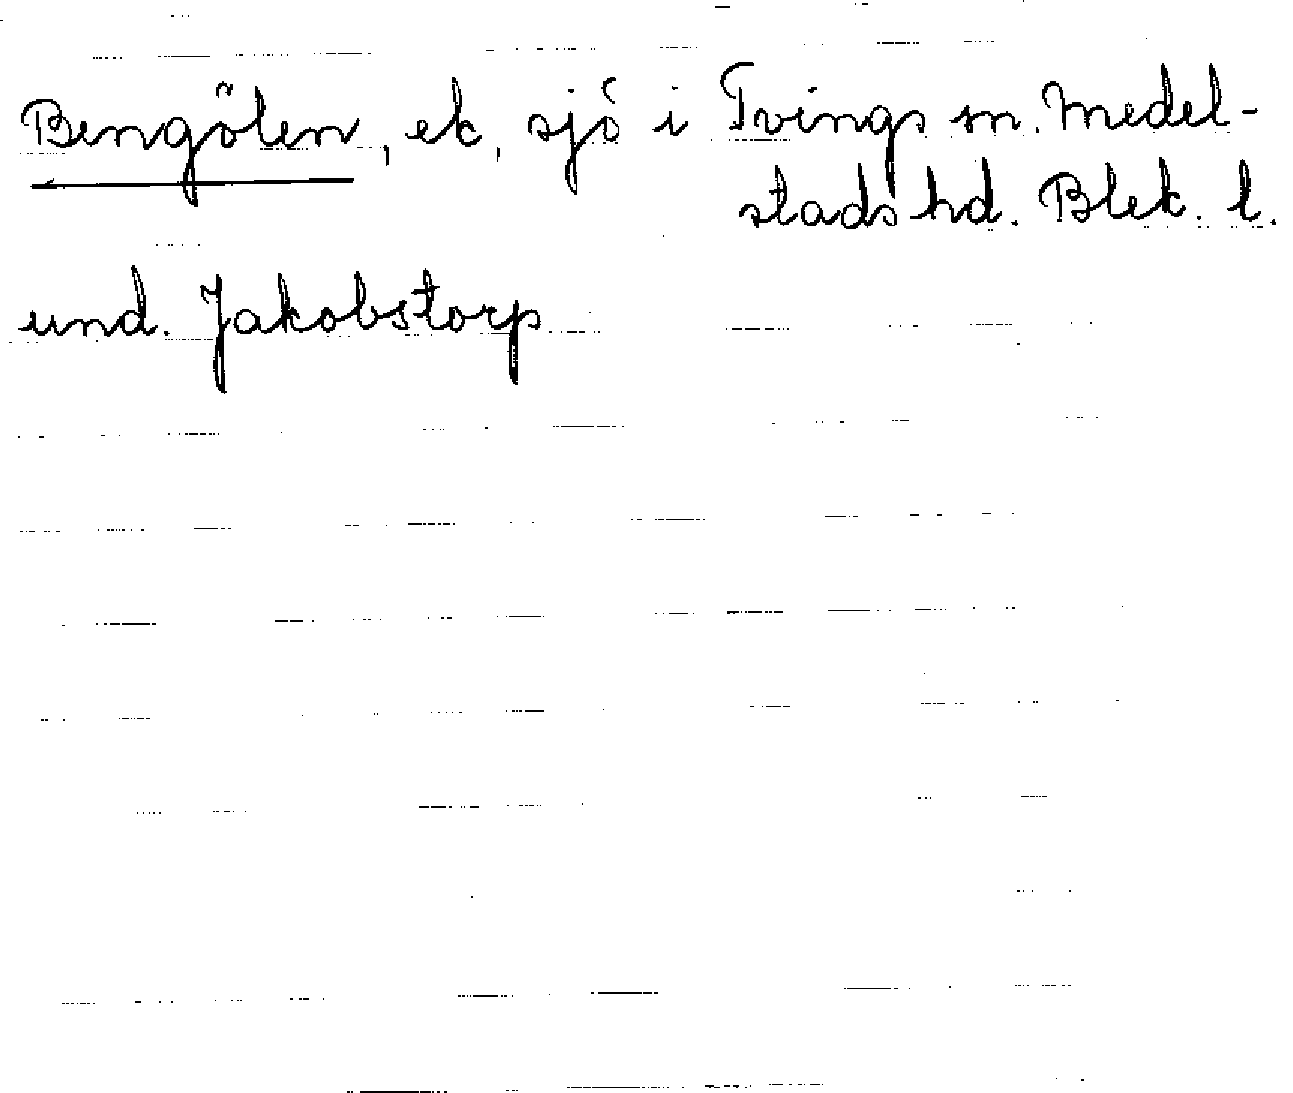 Bengölen, ek, sjö i Tvings sn. Medel-
stads hd. Blek. l.
und. Jakobstorp